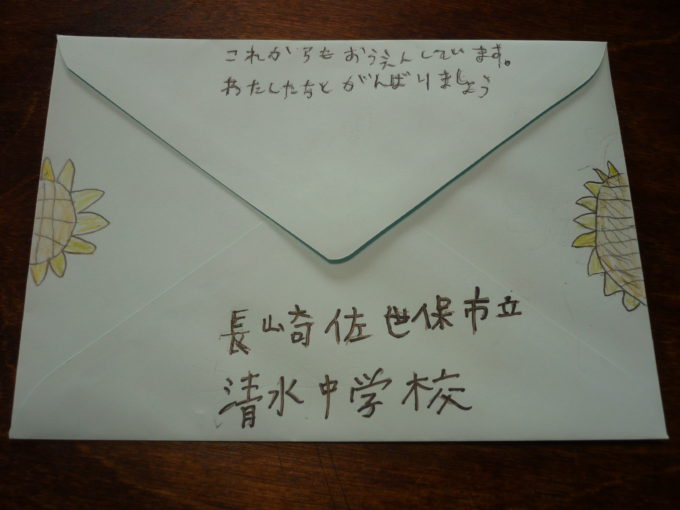 これからもおうえんしています。
わたしたちとがんばりましょう
長崎佐世保市立
清水中学校